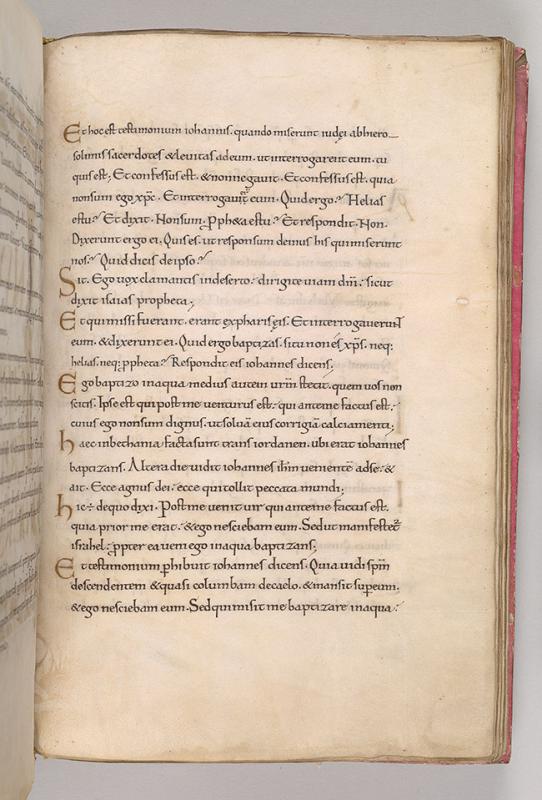 Et hoc est testimonium iohannis. quando miserunt iudęi abhiero
solimis sacerdotes & leuitas adeum. ut interrogarent eum. tu
quis es; Et confessus est. & nonnegauit. Et confessus est. quia
nonsum ego xp̄c. Et interrogauer̄ eum. Quid ergo? Helias
es tu? Et dixit. Nonsum. Proph&a es tu? Et respondit. Non.
Dixerunt ergo ei. Quis es. ut responsum demus his qui miserunt
nos? Quid dicis de ipso?
Sit. Ego uox clamantis indeserto. dirigite uiam dn̄i. sicut
dixit isaias propheta;
Et qui missi fuerant. erant expharisęis. Et interrogauerunt
eum. & dixerunt ei. Quid ergo baptizas. si tu non es xp̄s. neq:
helias. neq: ppheta? Respondit eis iohannes dicens;
Ego baptizo inaqua medius autem ur̄m stetit. quem uos non
scitis. Ipse est qui post me uenturus est. qui anteme factus est.
cuius ego nonsum dignus. ut soluā eius corrigiā calciamenti;
haec inbethania facta sunt trans iordanen. ubi erat iohannes
baptizans. Altera die uidit iohannes ih̄m uenientē adse. &
ait. Ecce agnus dei. ecce qui tollit peccata mundi;
hic ÷ dequo dixi. Post me uenit uir qui anteme factus est.
quia prior me erat. & ego nesciebam eum. Sed ut manifestet̄
israhel. ppter ea ueni ego inaqua baptizans;
Et testimonium phibuit iohannes dicens. Quia uidi sp̄m
descendentem & quasi columbam decaelo. & mansit sup eum.
& ego nesciebam eum. Sed qui misit me baptizare inaqua.